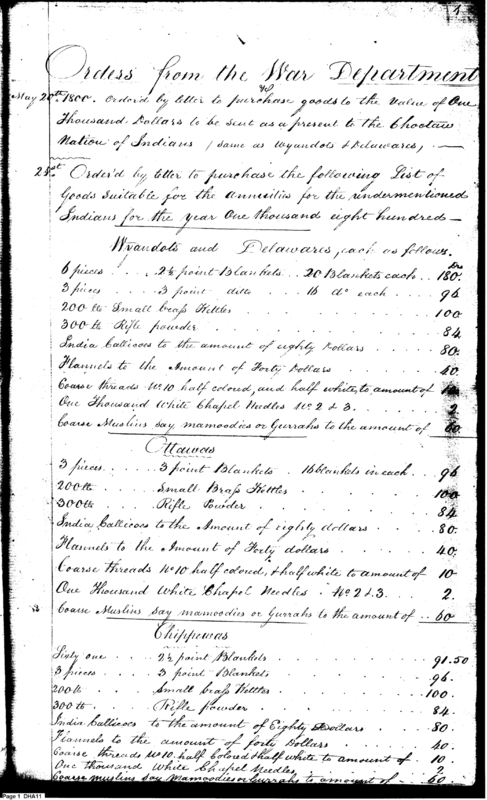 1
Orders from the War Department
May 20th. 1800. Order'd by letter to purchase goods to the value of One
Thousand Dollars to be sent as a present to the Choctaw
Nation of Indians (same as Wyandots & Delawares)
Order'd by letter to purchase the following List of
Goods Suitable for the annuities for the undermentioned
Indians for the year One thousand eight hundred —
Wyandots and Delawares, each as follows.
6 pieces . . . 2½ point Blankets . . 20 Blankets each . . 180.
3 pieces . . . 3 point ditto 16 do each . . . . 96
200 lb Small brass Kettles . . . . . 100
300 lb Rifle powder . . . . . 84
India Callicoes to the amount of eighty Dollars . . . . 80.
Flannels to the Amount of Forty Dollars . . . . 40.
Coarse threads No. 10 half colored, and half white, to amount of 10
One Thousand White Chapel Needles No. 2 & 3. . . . 2
Coarse Muslins say mamoodies or Gurrahs to the amount of 60
Ottawas
3 pieces . . . . 3 point Blankets . 16 blankets in each . . 96
200 lb . . . . Small Brass Kettles . . . . 100
300 lb . . . . Rifle Powder . . . . 84
India Callicoes to the Amount of eighty dollars . . . . 80.
Flannels to the Amount of Forty dollars . . . . 40.
Coarse threads No. 10 half colored, & half white to amount of 10
One Thousand White Chapel Needles . No. 2 & 3. . . . 2.
Coarse Muslins say mamoodies or Gurrahs to the amount of . . 60
Chippewas
Sixty one . . . 2½ point Blankets . . . . 91.50
3 pieces . . . 3 point Blankets . . . . 96.
200 lb . . . . Small brass Kettles . . . . 100.
300 lb . . . . Rifle powder . . . . 84.
India Callicoes to the amount of Eighty Dollars . . . . 80
Flannels to the amount of forty Dollars . . . . 40.
Coarse threads No. 10 half Colored half white to amount of 10
One thousand White Chapel Needles 2
Coarse muslins say mamoodies or Gurrahs to amount of 60
Page 1 DHA11